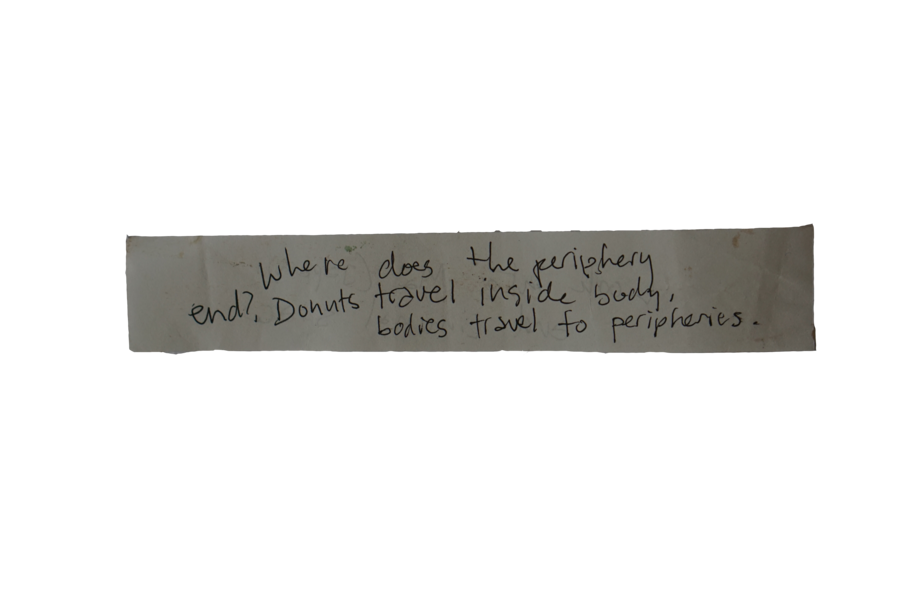 Where does the periphery
end?. Donuts travel inside body,
bodies travel to peripheries.